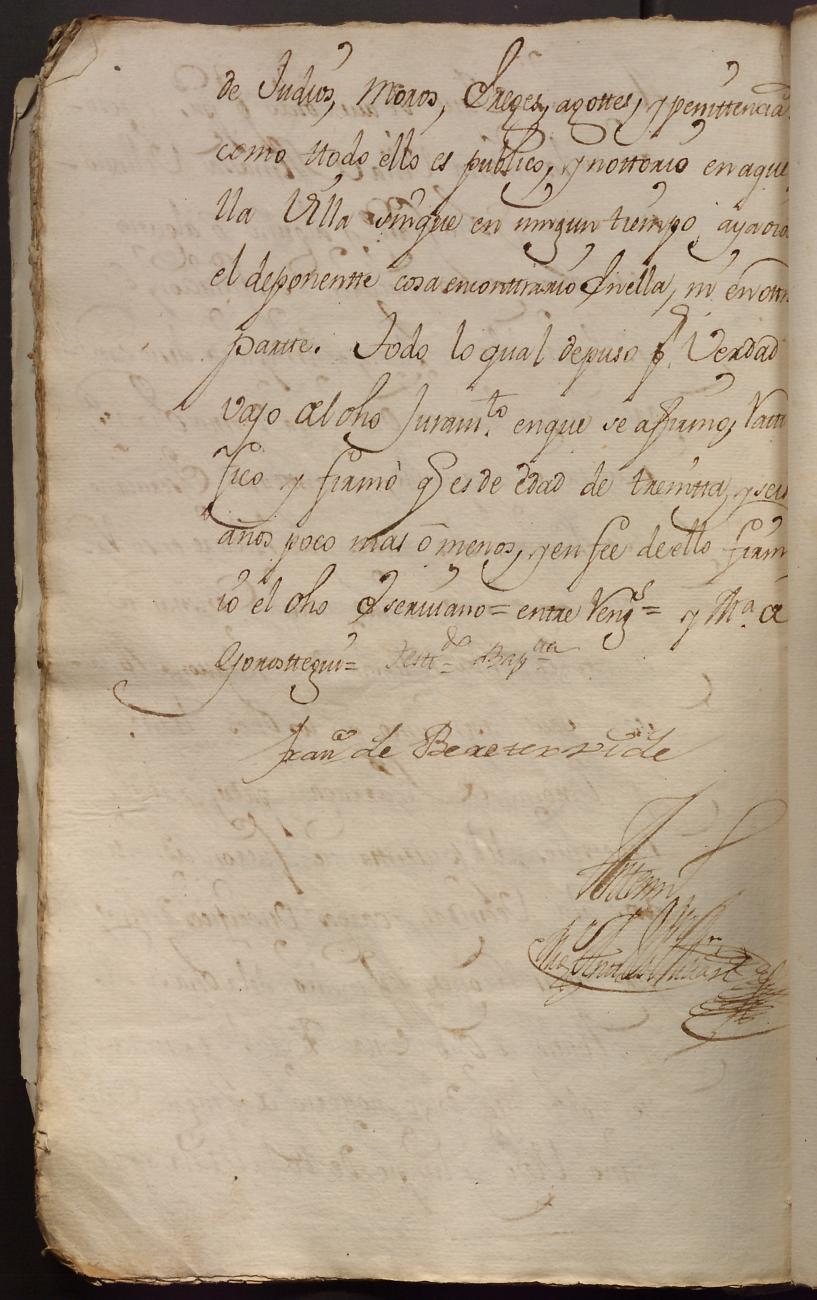 de Judios, Moros, Ereges, agottes, y penittencia
como ttodo ello es publico, y nottorio en aque
lla Villa sinque en ningun tiempo, aya oido
el deponentte cosa enconttrario Enella, ni en otra
partte. Todo lo qual depuso pr. Verdad
vajo del dho Juramto. enque se afirmo, Ratti
fico y firmò q es de edad de treintta, y seis
años poco mas ô menos, y en fee de ello firm
io el dho Escrivano= entre Rengs= y Ma. de
Gorosttegui=
Franco de Bereterbide
Antemi